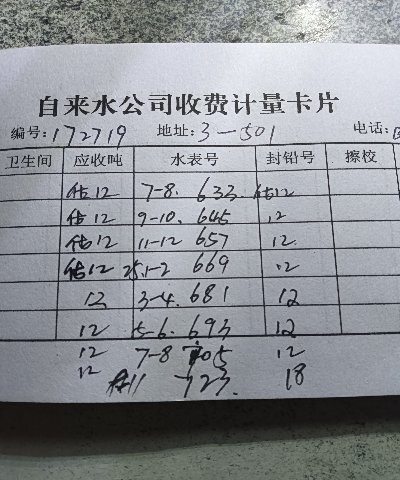 自来水公司收费计量卡片
编号:172719 地址:3-501 电话:
卫生间 应收吨 水表号 封铅号 擦校
估12 7-8. 633 估12
估12 9-10. 645 12
估12 11-12 657 12.
估12 25.1-2 669 12
12 3-4. 681 12
12 5-6. 693 12
12 7-8 705 12
12 11 723. 18